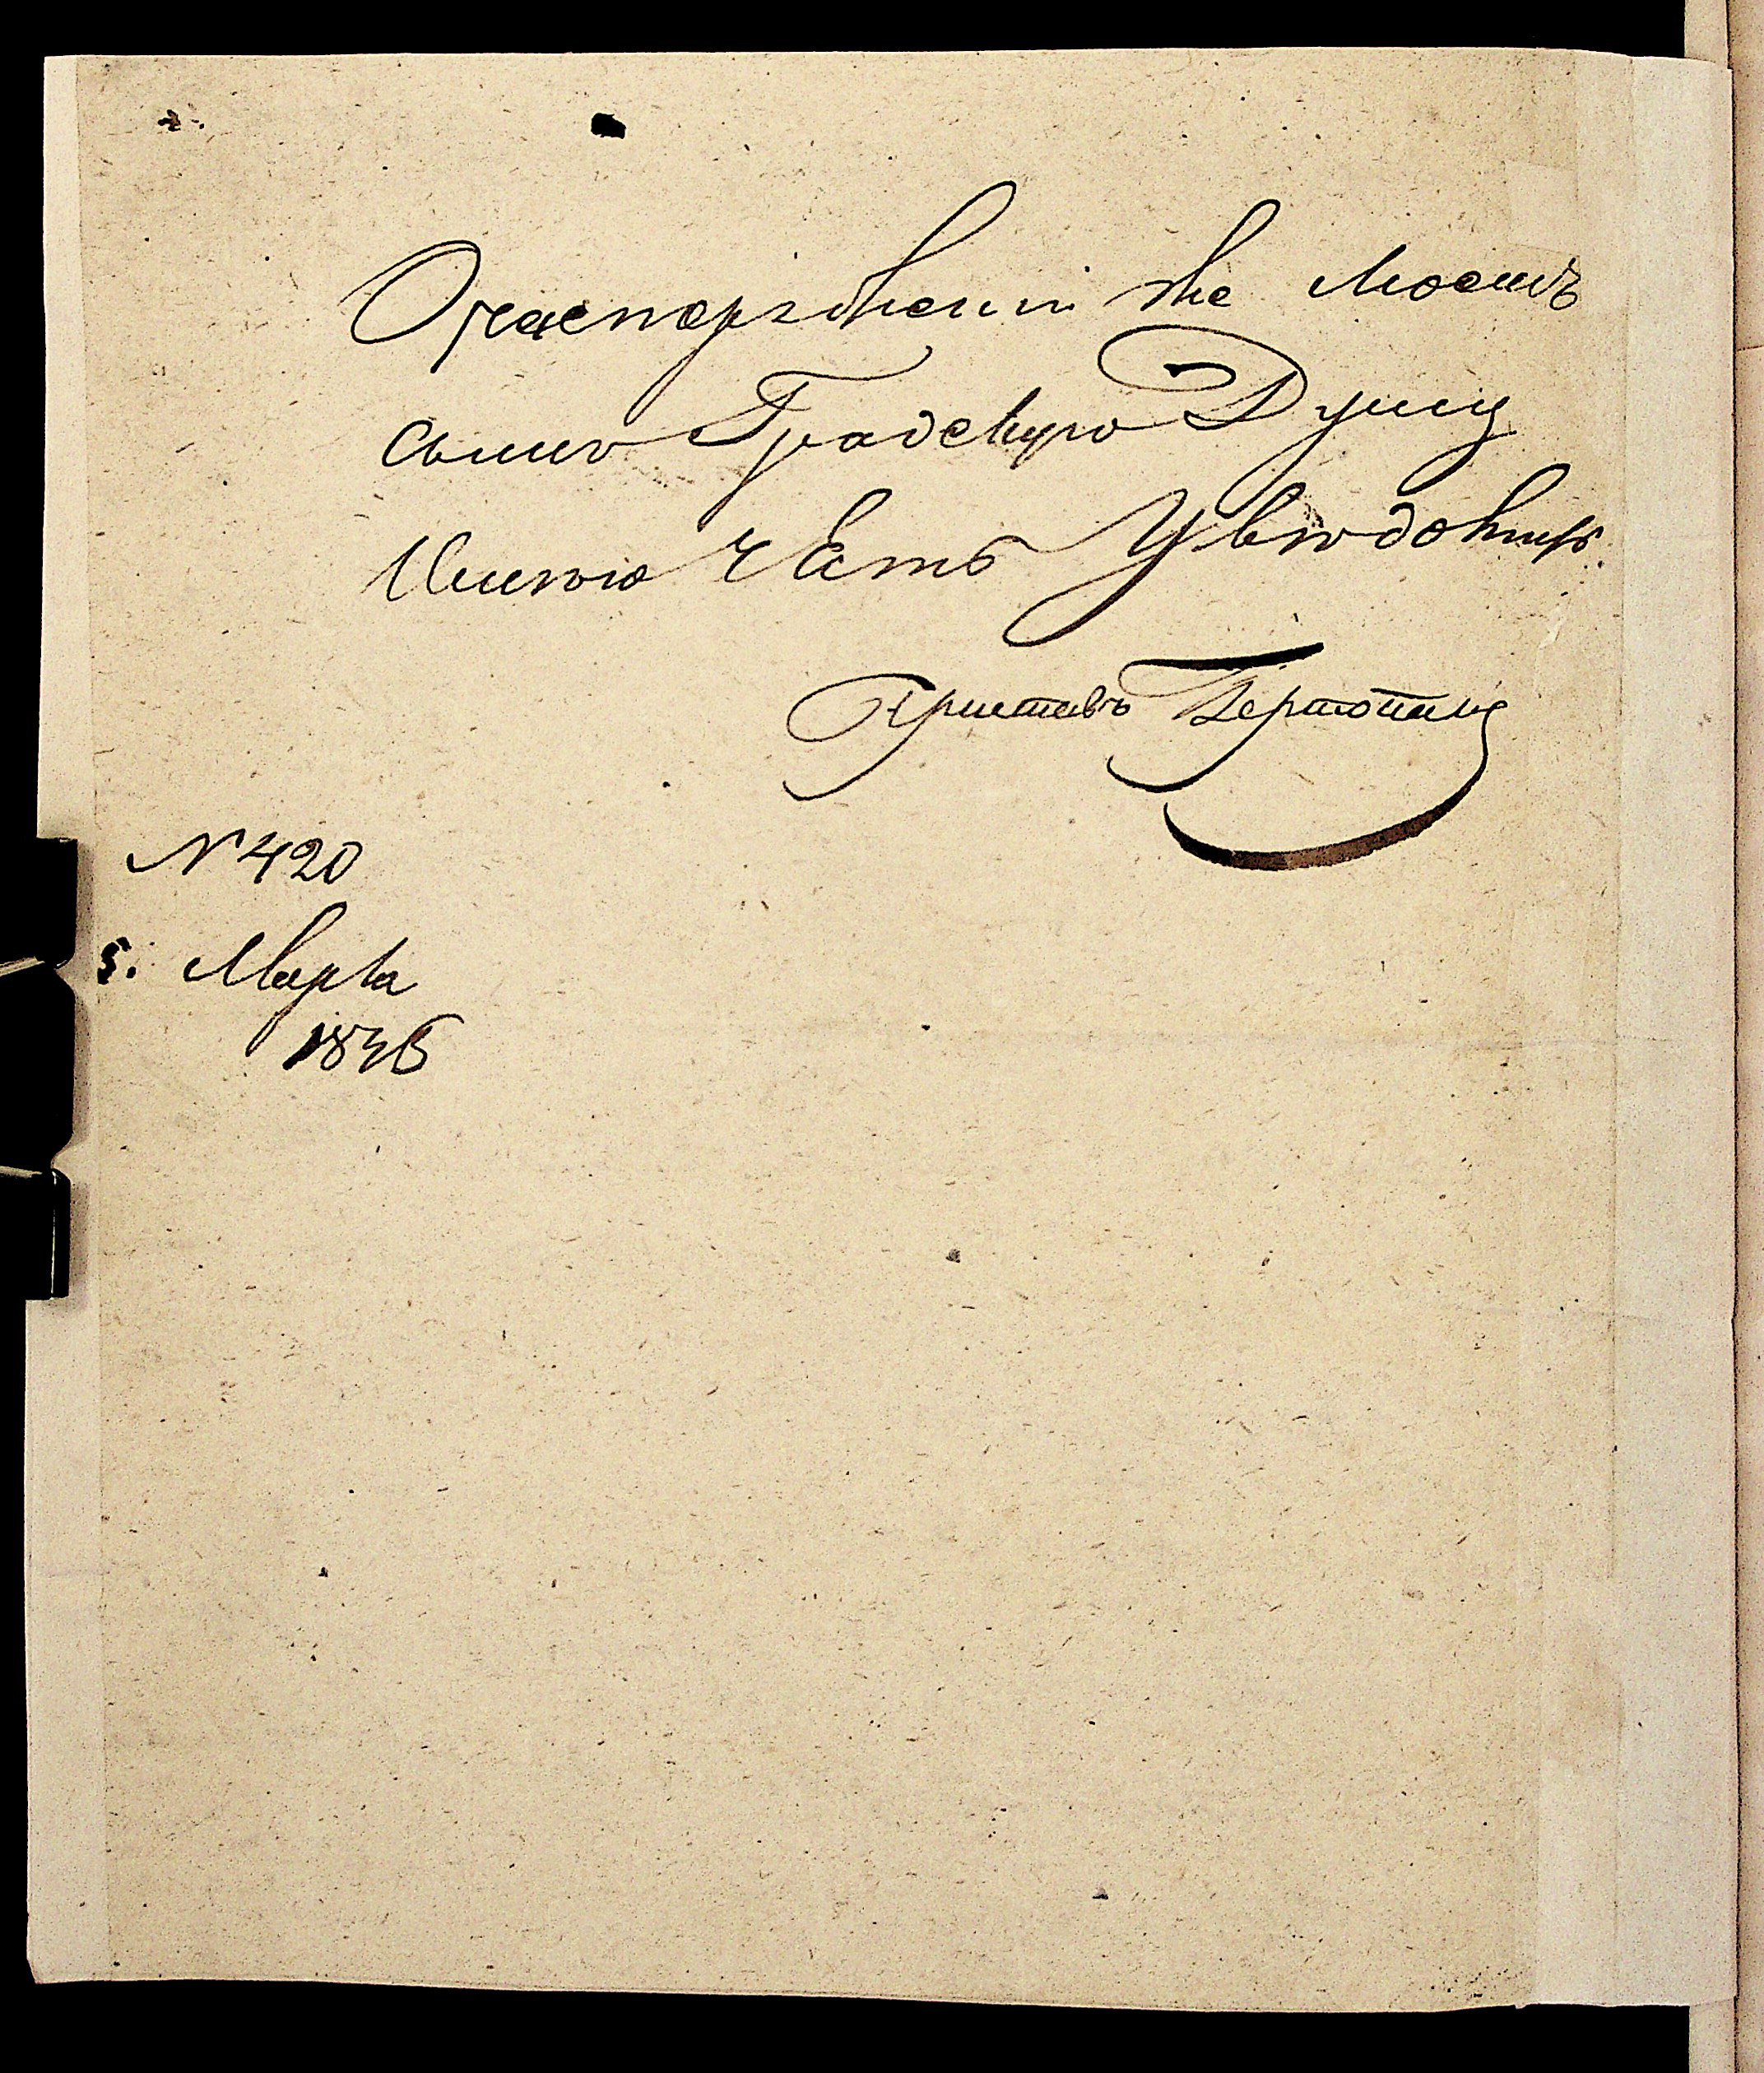 О распоряжении же Моемъ
симъ Градскую Думу
Имею Честь Уведомить.
Приставъ
N 420
5. Марта
1846